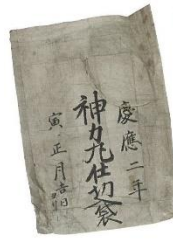 慶應二年
神力丸仕切袋
寅正月吉日